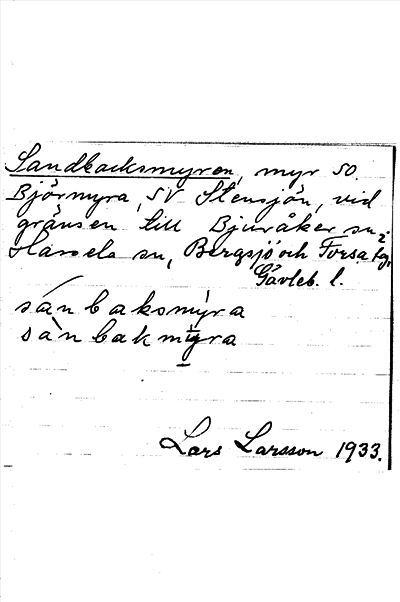 Sandbacksmyren, myr SO.
Björmyra, SV Stensjön, vid
gränsen till Bjuråker sn i
Hassela sn, Bergsjö och Forsa tg,
Gävleb. l.
sánbaksmỳra
sànbakmyra
Lars Larsson 1933.